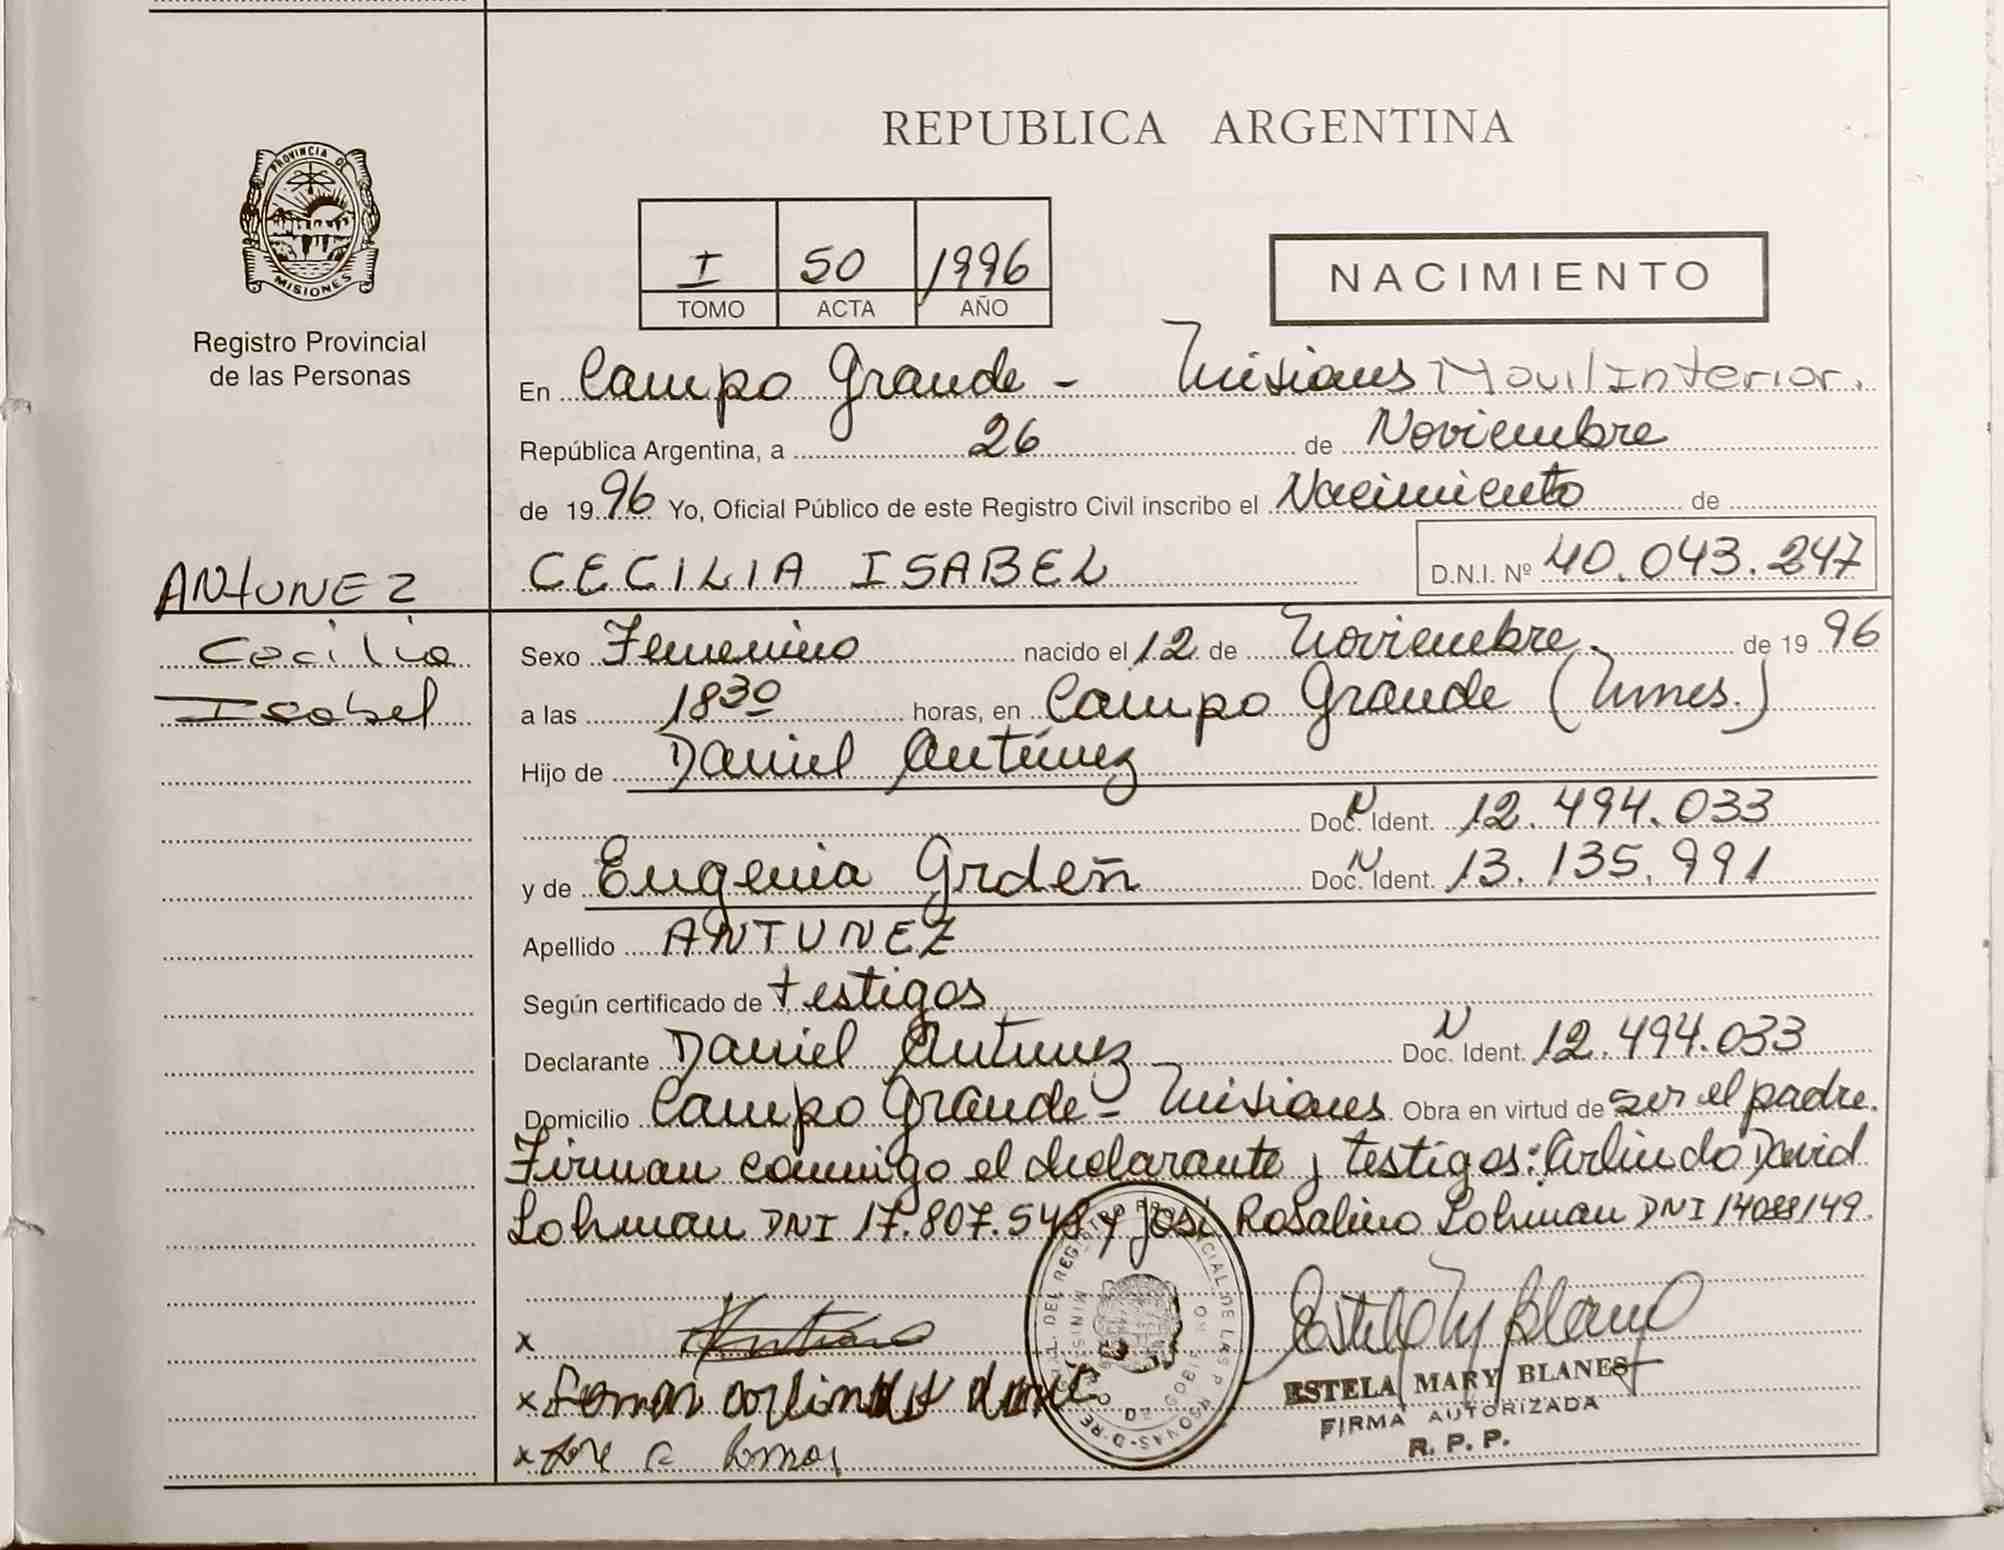 REPUBLICA ARGENTINA
PROVINCIA DE
MISIONES
Registro Provincial
de las Personas
I 50 1996
TOMO ACTA AÑO
NACIMIENTO
En Campo Grande - Misiones Movil Interior.
República Argentina, a 26 de Noviembre
de 1996 Yo, Oficial Público de este Registro Civil inscribo el Nacimiento de
CECILIA ISABEL D.N.I. Nº 40.043.247
ANTUNEZ
Cecilia
Isabel
Sexo Femenino nacido el 12 de Noviembre de 1996
a las 18³⁰ horas, en Campo Grande (Mnes.)
Hijo de Daniel Antúnez
Doc. N Ident. 12.494.033
y de Eugenia Grdeñ Doc. N Ident. 13.135.991
Apellido ANTUNEZ
Según certificado de testigos
Declarante Daniel Antunez Doc. N Ident. 12.494.033
Domicilio Campo Grande - Misiones Obra en virtud de ser el padre.
Firman conmigo el declarante y testigos: Arlindo David
Lohman DNI 17.807.548 y José Rosalino Lohman DNI 14088149.
x
x
x
ESTELA MARY BLANES
FIRMA AUTORIZADA
R. P. P.